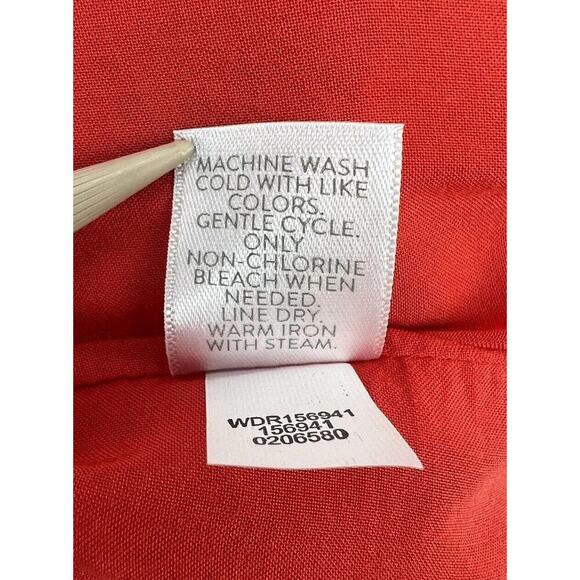 MACHINE WASH
COLD WITH LIKE
COLORS.
GENTLE CYCLE.
ONLY
NON-CHLORINE
BLEACH WHEN
NEEDED.
LINE DRY.
WARM IRON
WITH STEAM.
WDR156941
156941
0206580